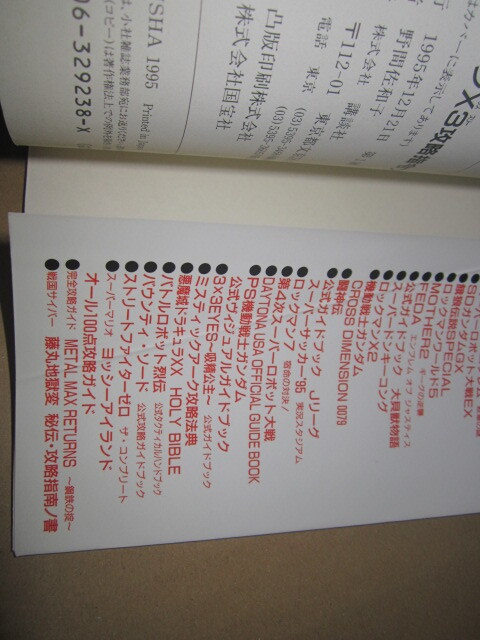 X3攻略指
は カバーに表示してあります
行 1995年12月21日
野間佐和子
株式会社 講談社
〒112-01 東京都文
電話 東京 (03)5395-
(03)5395-36
凸版印刷株式会社
株式会社国宝社
SHA 1995 Printed in Ja
は、小社雑誌業務部宛にお送りくださ
(コピー)は著作権法上での例外
06-329238-X
ロボット大戦EX
SDガンダム
龍狼伝説SPAGX
ロックマンワールド5
MOTHER2 ギーグの逆襲
FEDA エンブレム オブ ジャスティス
公式ガイドブック 大貝獣物語
スーパードンキーコング
ロックマンX2
機動戦士ガンダム
CROSS DIMENSION 0079
●闘神伝
●公式ガイドブック Jリーグ
スーパーサッカー'95 実況スタジアム
●ロックマン7 宿命の対決!
●第4次スーパーロボット大戦
●DAYTONA USA OFFICIAL GUIDE BOOK
●PS機動戦士ガンダム
公式ヴィジュアルガイドブック
●3×3EYES〜吸精公主〜 公式ガイドブック
●ミスティックアーク攻略法典
●悪魔城ドラキュラXX HOLY BIBLE
●バトルロボット烈伝 公式タクティカルハンドブック
●バウンティ・ソード 公式攻略ガイドブック
●ストリートファイターゼロ ザ・コンプリート
●スーパーマリオ ヨッシーアイランド
オール100点攻略ガイド
●完全攻略ガイド METAL MAX RETURNS 〜鋼鉄の掟〜
●戦国サイバー 藤丸地獄変 秘伝・攻略指南ノ書